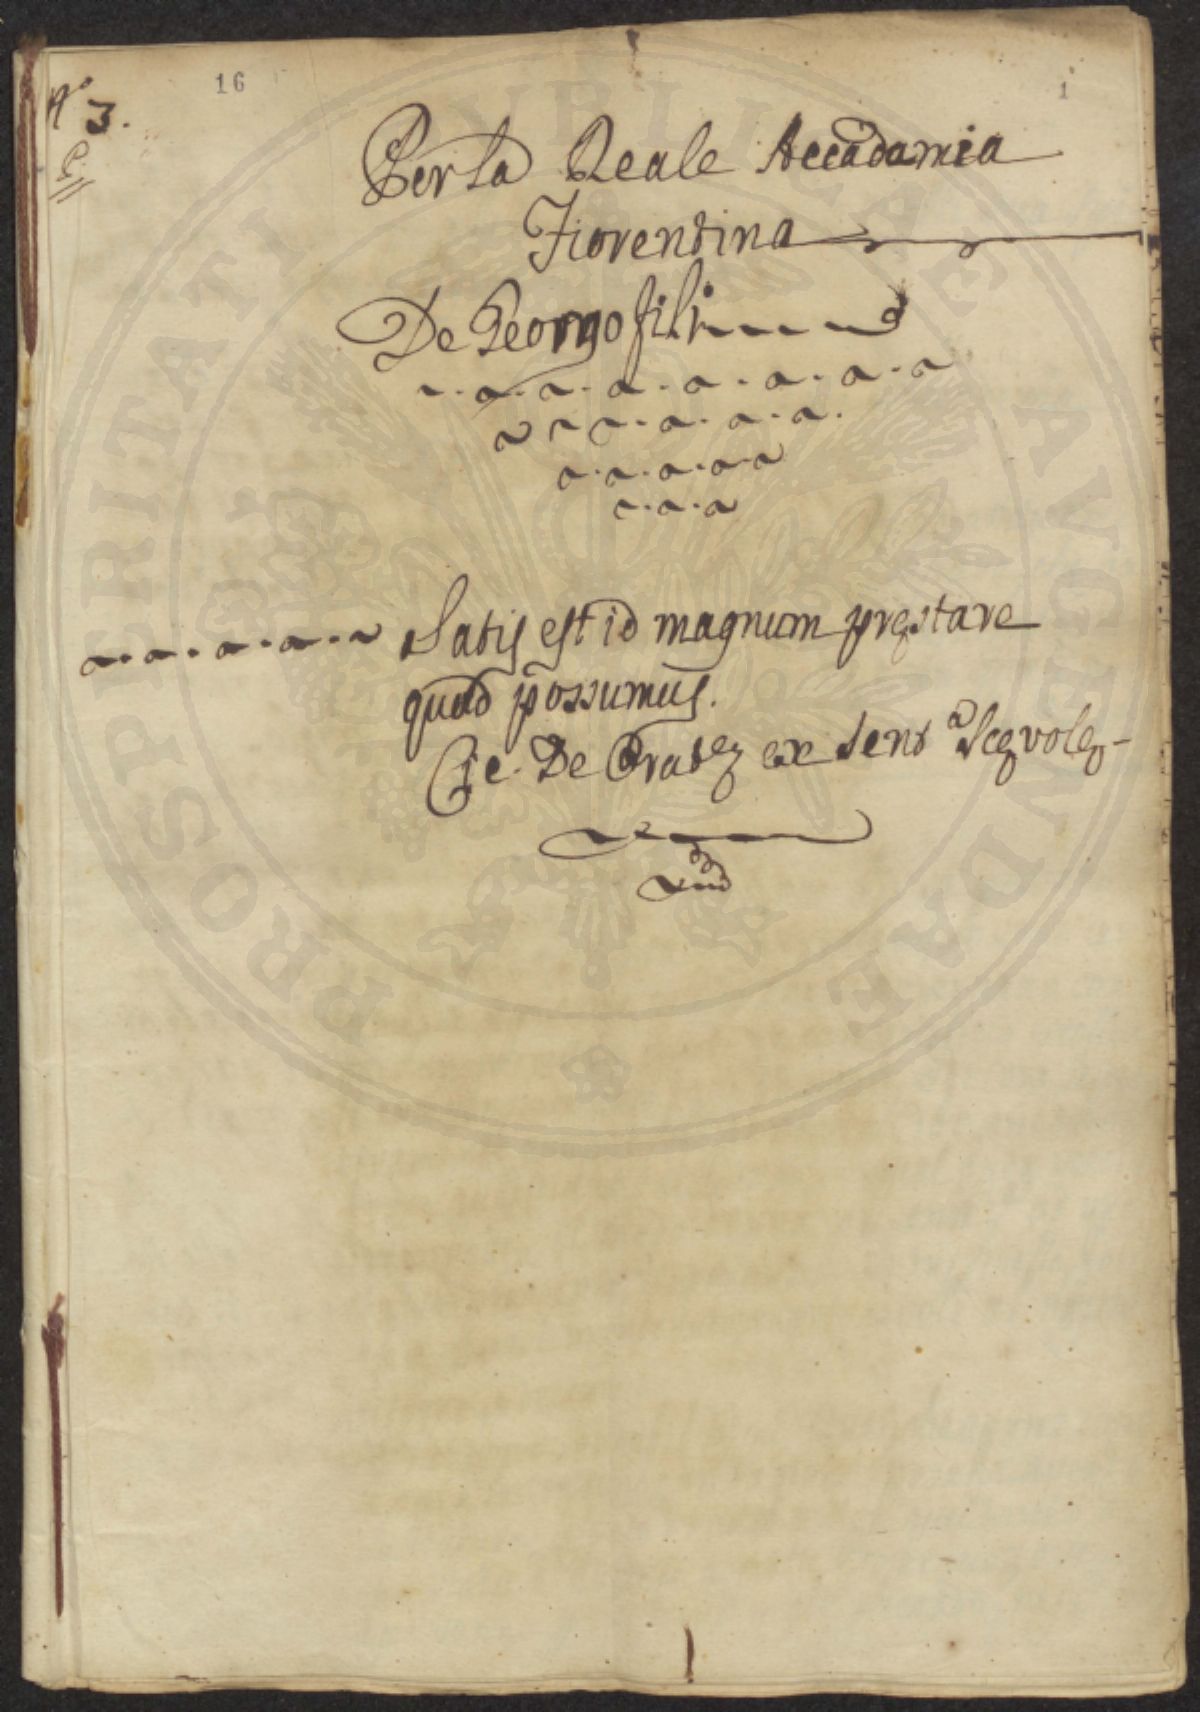 16
1
N° 3.
P.
Per la Reale Accadamia
Fiorentina
De Georgofili
Satis est id magnum pręstare
quod possumus.
Cic. De Oratę ex sent.ª Scęvolę
PROSPERITATI PVBLICAE AVGENDAE